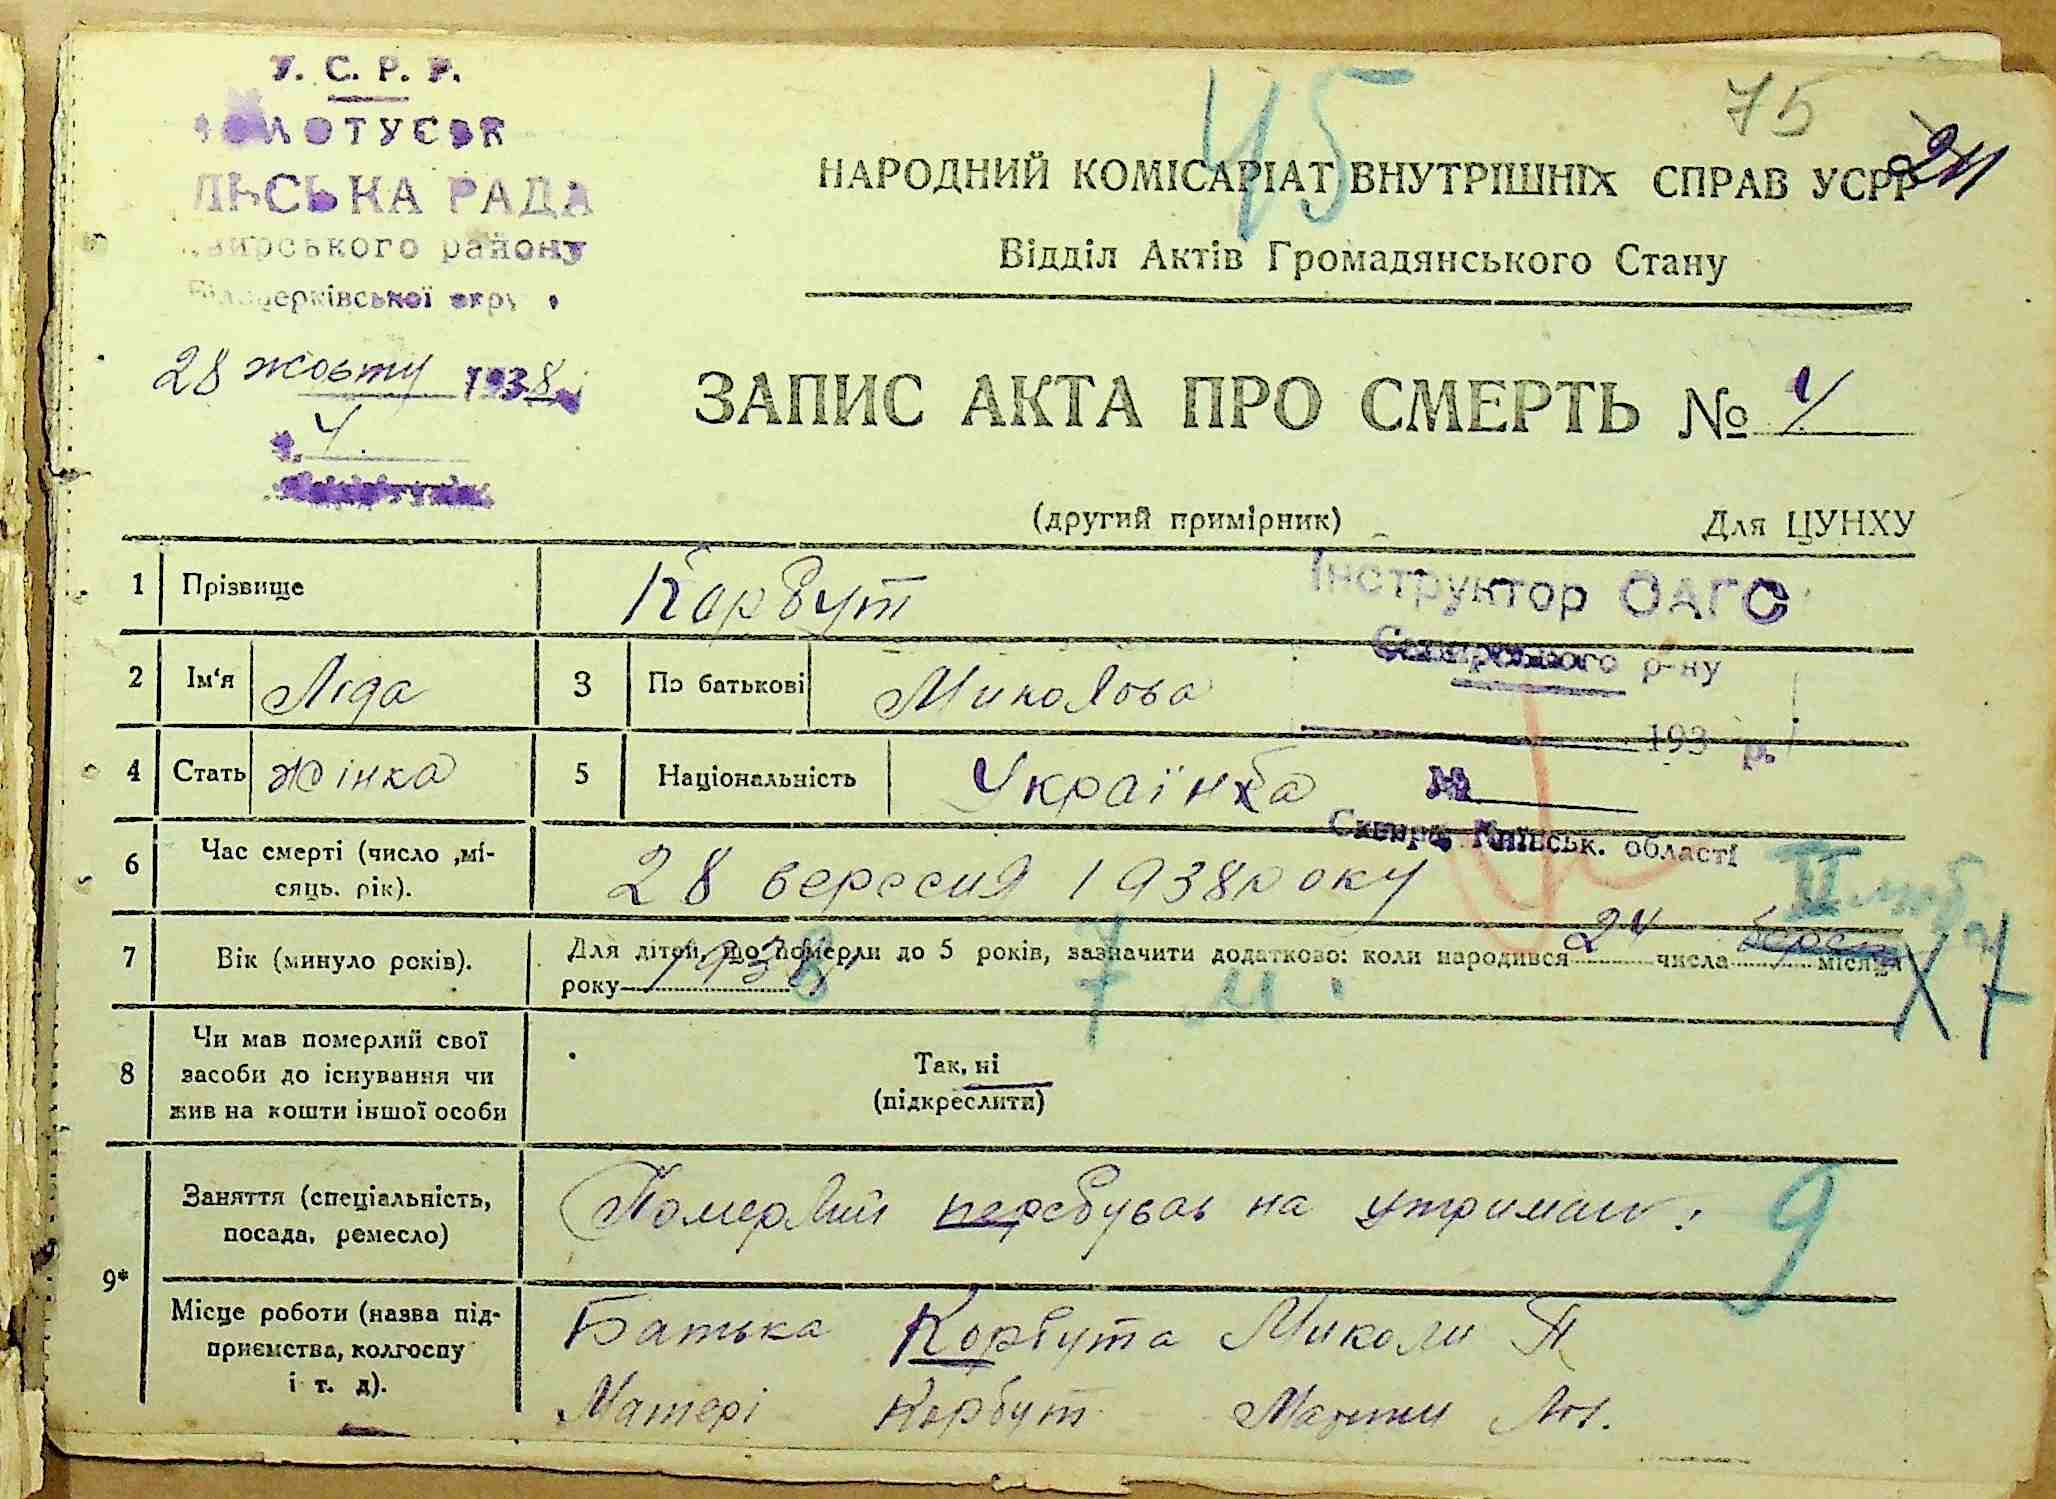 У. С. Р. Р.
ЛЬСЬКА РАДА
району
28 жовтн 1938
Ч. 4
45
75
НАРОДНИЙ КОМІСАРІАТ ВНУТРІШНІХ СПРАВ УСРР
Відділ Актів Громадянського Стану
ЗАПИС АКТА ПРО СМЕРТЬ № 4
(другий примірник) Для ЦУНХУ
Інструктор ОАГС
Сквирського р-ну
193 р.
№
Сквира, Київськ. області
1 Прізвище Корбут
2 Ім'я Ліда 3 По батькові Миколова
4 Стать жінка 5 Національність Українка
6 Час смерті (число, мі-
сяць. рік). 28 вересня 1938 року
7 Вік (минуло років). Для дітей, що померли до 5 років, зазначити додатково: коли народився 24 числа берез місяця
року 1938
7 м.
X 7
8 Чи мав померлий свої
засоби до існування чи
жив на кошти іншої особи
Так, ні
(підкреслити)
9* Заняття (спеціальність,
посада, ремесло) Померлий перебував на утриман:
9
Місце роботи (назва під-
приємства, колгоспу
і т. д).
Батька Корбута Миколи П
Матері Корбут